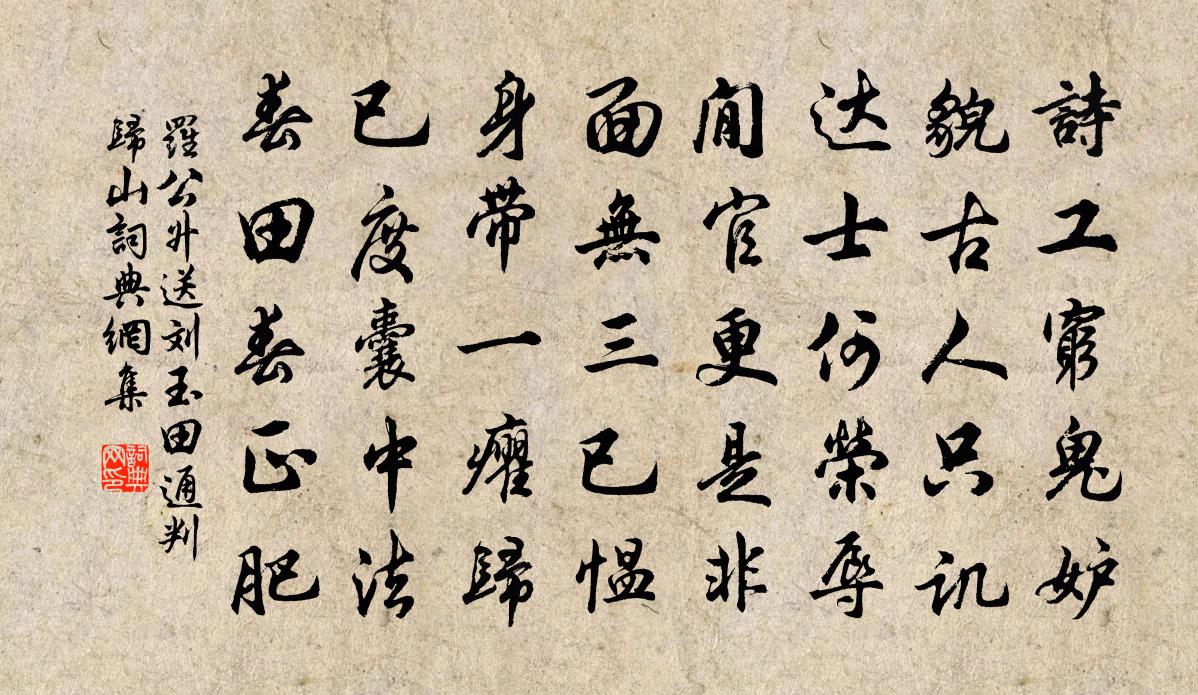 詩工窮鬼妒
貌古人只讥
达士何榮辱
閒官更是非
面無三已愠
身带一癯歸
已度囊中法
春田春正肥
羅公升送刘玉田通判
歸山詞典網集
詞典网印